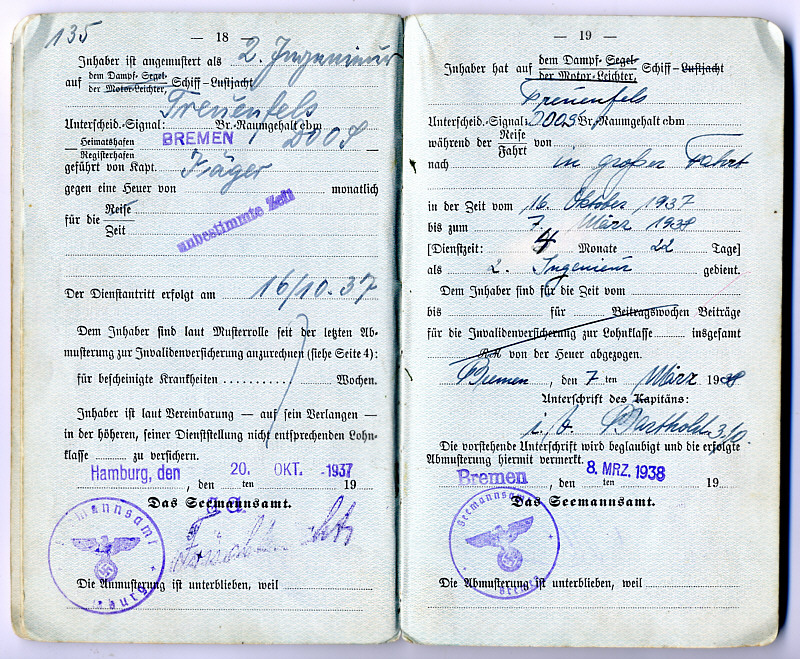 135
— 18 —
Inhaber ist angemustert als 2. Ingenieur
auf dem Dampf- Segel- Schiff-Lustjacht
der Motor-Leichter,
Treuenfels
Unterscheid.-Signal: Br.-Raumgehalt cbm
Heimatshafen BREMEN DOOS
Registerhafen
geführt von Kapt. Jäger
gegen eine Heuer von monatlich
für die Reise
Zeit
unbestimmte Zeit
Der Dienstantritt erfolgt am 16/10.37
Dem Inhaber sind laut Musterrolle seit der letzten Ab-
musterung zur Invalidenversicherung anzurechnen (siehe Seite 4):
für bescheinigte Krankheiten . . . . . . . . . . Wochen.
Inhaber ist laut Vereinbarung — auf sein Verlangen —
in der höheren, seiner Dienststellung nicht entsprechenden Lohn-
klasse zu versichern.
Hamburg, den 20. OKT. 1937
, den ten 19
Das Seemannsamt.
Seemannsamt
Die Anmusterung ist unterblieben, weil
— 19 —
Inhaber hat auf dem Dampf- Segel- Schiff-Lustjacht
der Motor-Leichter,
Treuenfels
Unterscheid.-Signal: DOOS Br.-Raumgehalt cbm
während der Reise von
Fahrt
nach in großer Fahrt
in der Zeit vom 16. Oktober 1937
bis zum 7. März 1938
[Dienstzeit: 4 Monate 22 Tage]
als 2. Ingenieur gedient.
Dem Inhaber sind für die Zeit vom
bis für Beitragswochen Beiträge
für die Invalidenversicherung zur Lohnklasse insgesamt
RM von der Heuer abgezogen.
Bremen, den 7 ten März 1938
Unterschrift des Kapitäns:
Die vorstehende Unterschrift wird beglaubigt und die erfolgte
Abmusterung hiermit vermerkt.
Bremen 8. MRZ. 1938
, den ten 19
Das Seemannsamt.
Seemannsamt
Bremen
Die Abmusterung ist unterblieben, weil